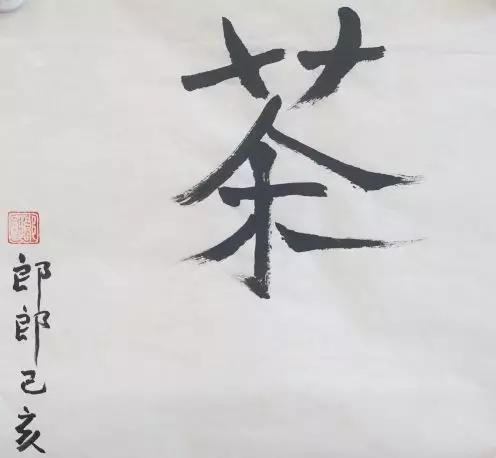 茶
郎郎己亥